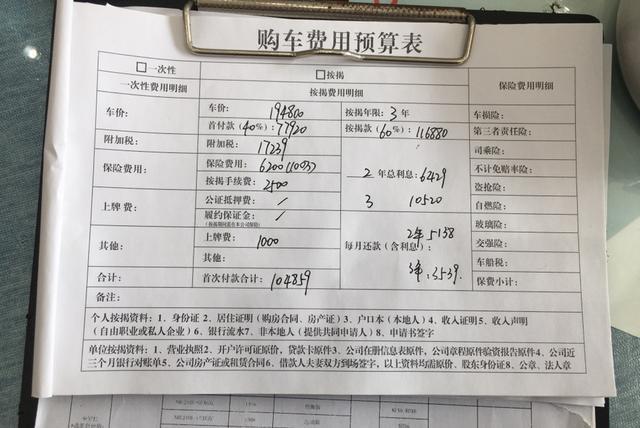 购车费用预算表
□一次性 □按揭 保险费用明细
一次性费用明细 按揭费用明细
车价: 车价: 194800 按揭年限: 3年 车损险:
首付款(40%): 77920 按揭款(60%): 116880 第三者责任险:
附加税: 附加税: 17239 司乘险:
保险费用: 保险费用: 6200(1003) 2年总利息: 6429 不计免赔率险:
按揭手续费: 2500 盗抢险:
上牌费: 公证抵押费: / 3 10520 自燃险:
履约保证金: / 玻璃险:
其他: 上牌费: 1000 每月还款(含利息): 2年5138 交强险:
其他: 3年:3539. 车船税:
合计: 首次付款合计: 104859 保费小计:
备注:
个人按揭资料:1、身份证2、居住证明(购房合同、房产证)3、户口本(本地人)4、收入证明5、收入声明
(自由职业或私人企业)6、银行流水7、非本地人(提供共同申请人)8、申请书签字
单位按揭资料:1、营业执照2、开户许可证原价,贷款卡原件3、公司在册信息表原件,公司章程原件验资报告原件4、公司近
三个月银行对账单5、公司房产证或租赁合同6、借款人夫妻双方到场签字,以上资料均需原价、股东身份证8、公章、法人章